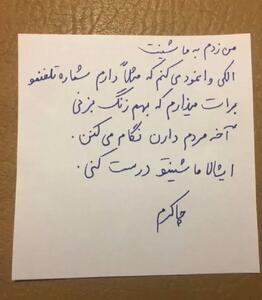 من زدم به ماشینت
الکی وانمود می کنم که مثلاً دارم شماره تلفنمو
برات میذارم که بهم زنگ بزنی
آخه مردم دارن نگام می کنن.
ایشالا ماشینتو درست کنی.
چاکرم